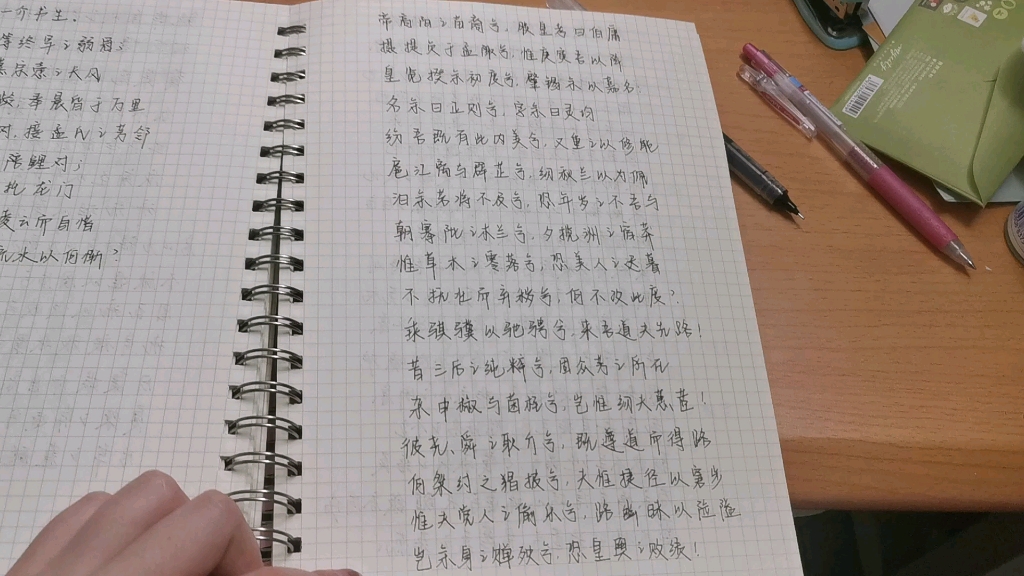 一介书生.
等终军之弱冠;
慕宗悫之长风
奉晨昏于万里
接孟氏之芳邻
陪鲤对;
托龙门
凌云而自惜
流水以何惭?
帝高阳之苗裔兮, 朕皇考曰伯庸
摄提贞于孟陬兮, 惟庚寅吾以降
皇览揆余初度兮, 肇锡余以嘉名
名余曰正则兮, 字余曰灵均
纷吾既有此内美兮, 又重之以修能
扈江离与辟芷兮, 纫秋兰以为佩
汩余若将不及兮, 恐年岁之不吾与
朝搴阰之木兰兮, 夕揽洲之宿莽
惟草木之零落兮, 恐美人之迟暮
不抚壮而弃秽兮, 何不改此度?
乘骐骥以驰骋兮, 来吾道夫先路!
昔三后之纯粹兮, 固众芳之所在
杂申椒与菌桂兮, 岂惟纫夫蕙茝!
彼尧、舜之耿介兮, 既遵道而得路
何桀纣之猖披兮, 夫惟捷径以窘步
惟夫党人之偷乐兮, 路幽昧以险隘
岂余身之惮殃兮, 恐皇舆之败绩!